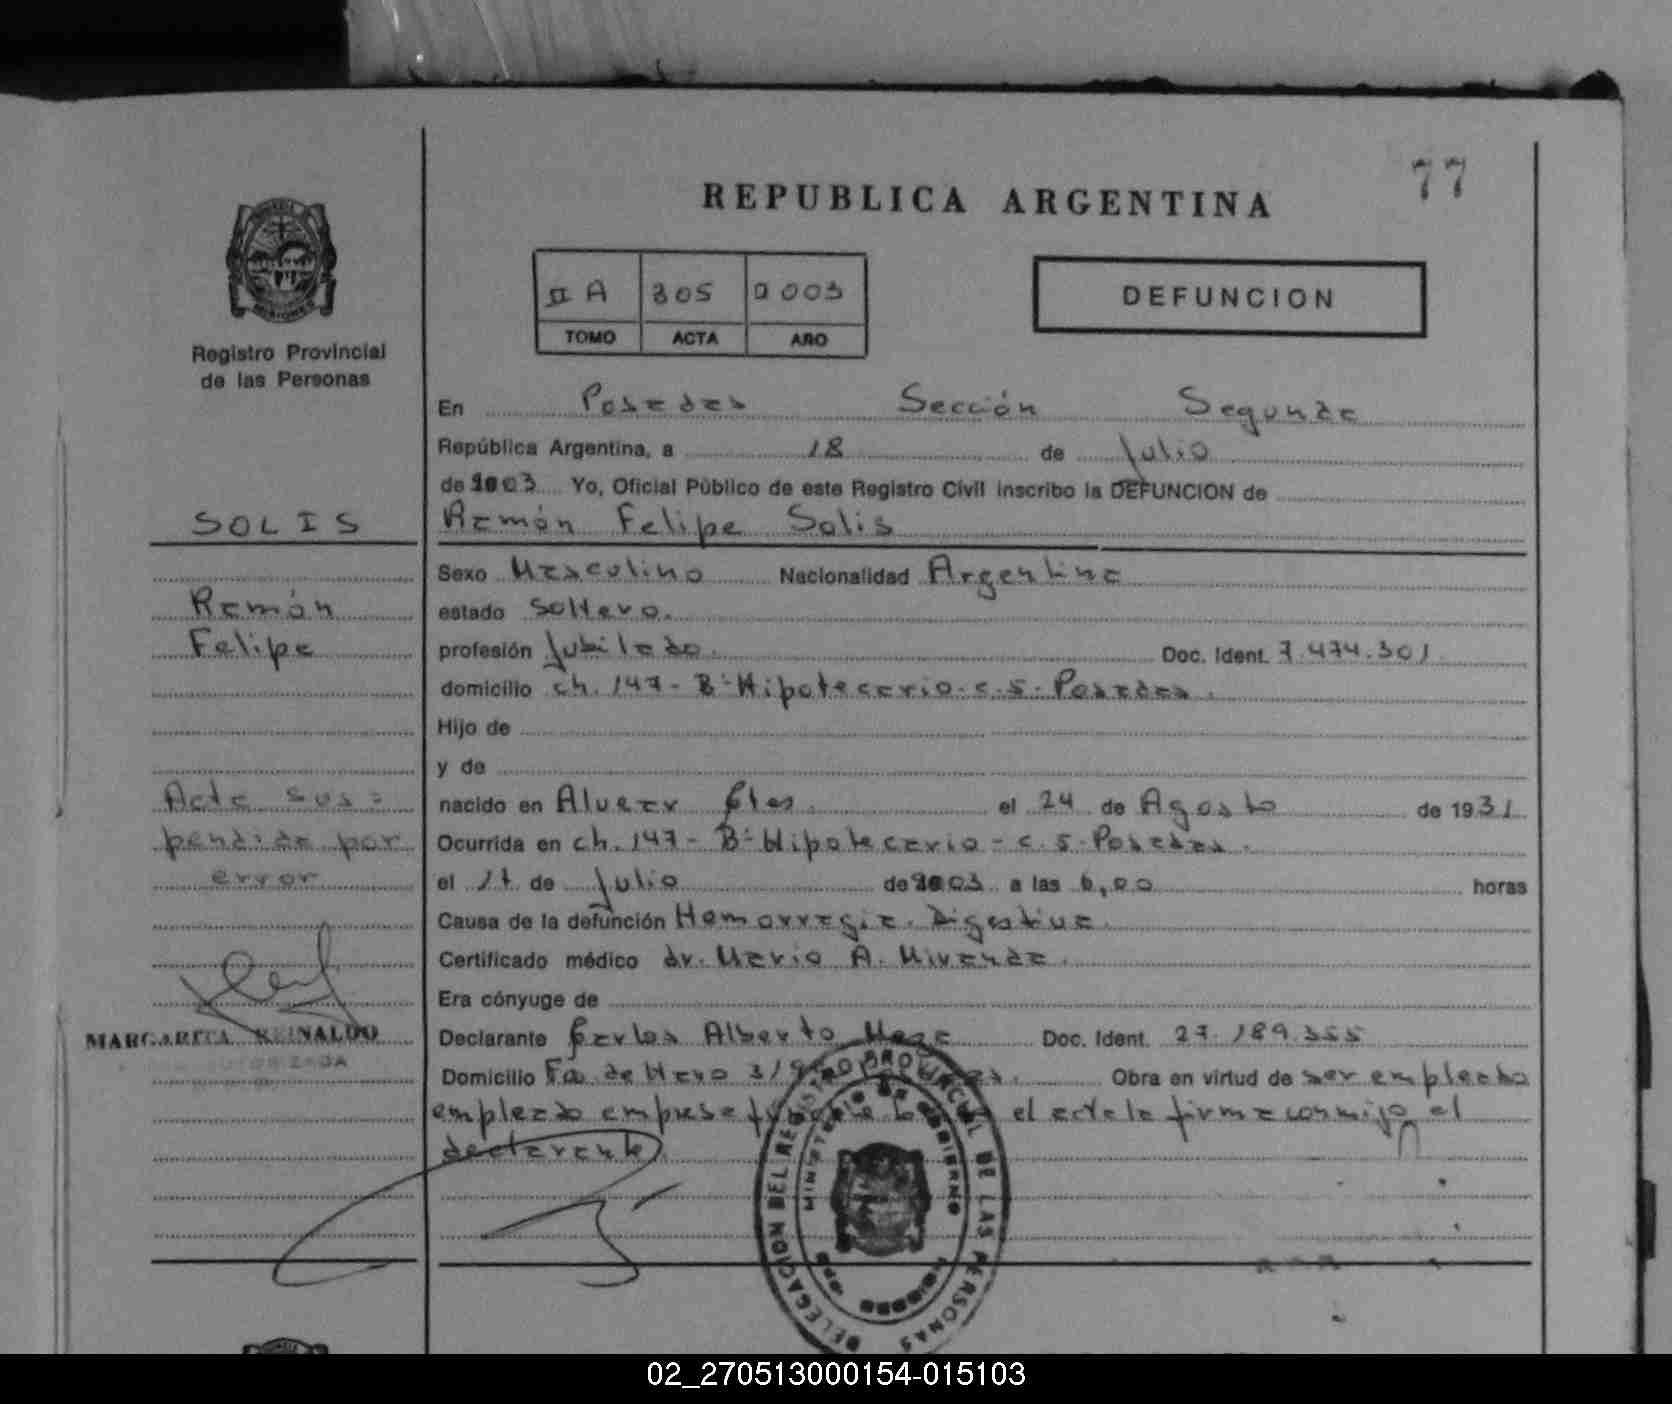 77
REPUBLICA ARGENTINA
II A 305 2003
TOMO ACTA AÑO
DEFUNCION
Registro Provincial
de las Personas
En Posadas Sección Segunda
República Argentina, a 18 de Julio
de 2003 Yo, Oficial Público de este Registro Civil inscribo la DEFUNCION de
SOLIS
Ramón Felipe Solis
Sexo Masculino Nacionalidad Argentina
Ramón
estado soltero.
Felipe
profesión Jubilado. Doc. Ident. 7.474.301.
domicilio ch. 147 - Bº Hipotecario - c. 5 - Posadas.
Hijo de
y de
Acta sus=
pendida por
error
nacido en Alvear Ctes. el 24 de Agosto de 1931
Ocurrida en ch. 147 - Bº Hipotecario - c. 5 - Posadas.
el 17 de Julio de 2003 a las 6,00 horas
Causa de la defunción Hemorragia. Digestiva.
Certificado médico dr. Mario A. Miranda.
Era cónyuge de
MARGARITA REINALDO
AUTORIZADA
Declarante Carlos Alberto Doc. Ident. 27.189.355
Domicilio de Mayo Obra en virtud de ser empleado
empleado empresa el acta la firma conmigo el
declarante
DELEGACION DEL REGISTRO PROVINCIAL DE LAS PERSONAS
MINISTERIO DE GOBIERNO
02_270513000154-015103